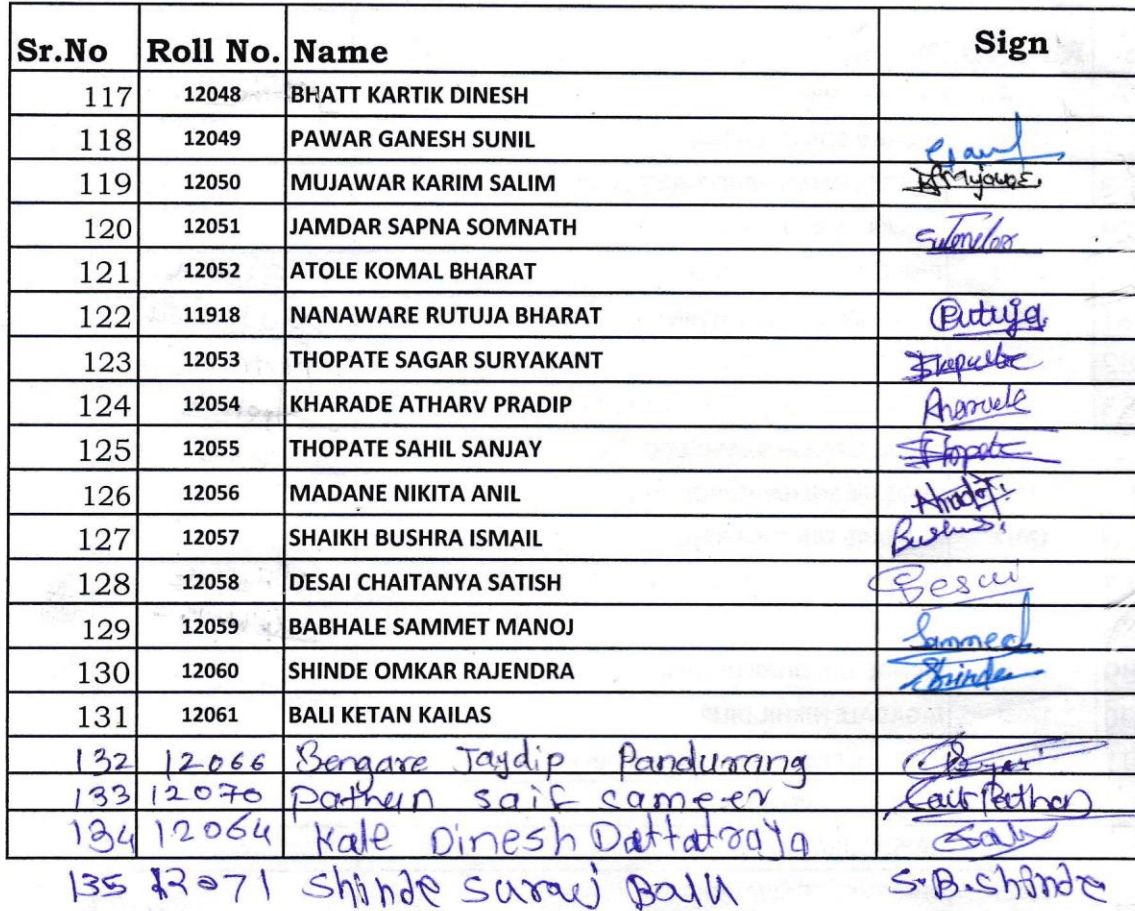 Sr.No Roll No. Name Sign
117 12048 BHATT KARTIK DINESH
118 12049 PAWAR GANESH SUNIL
119 12050 MUJAWAR KARIM SALIM
120 12051 JAMDAR SAPNA SOMNATH
121 12052 ATOLE KOMAL BHARAT
122 11918 NANAWARE RUTUJA BHARAT Rutuja
123 12053 THOPATE SAGAR SURYAKANT
124 12054 KHARADE ATHARV PRADIP
125 12055 THOPATE SAHIL SANJAY Thopate
126 12056 MADANE NIKITA ANIL
127 12057 SHAIKH BUSHRA ISMAIL
128 12058 DESAI CHAITANYA SATISH Desai
129 12059 BABHALE SAMMET MANOJ Sammed
130 12060 SHINDE OMKAR RAJENDRA Shinde
131 12061 BALI KETAN KAILAS
132 12066 Bengare Jaydip Pandurang
133 12070 pathan saif sameer Saif Pathan
134 12064 Kale Dinesh Dattatraya
135 12071 Shinde Suraj Balu S.B.Shinde